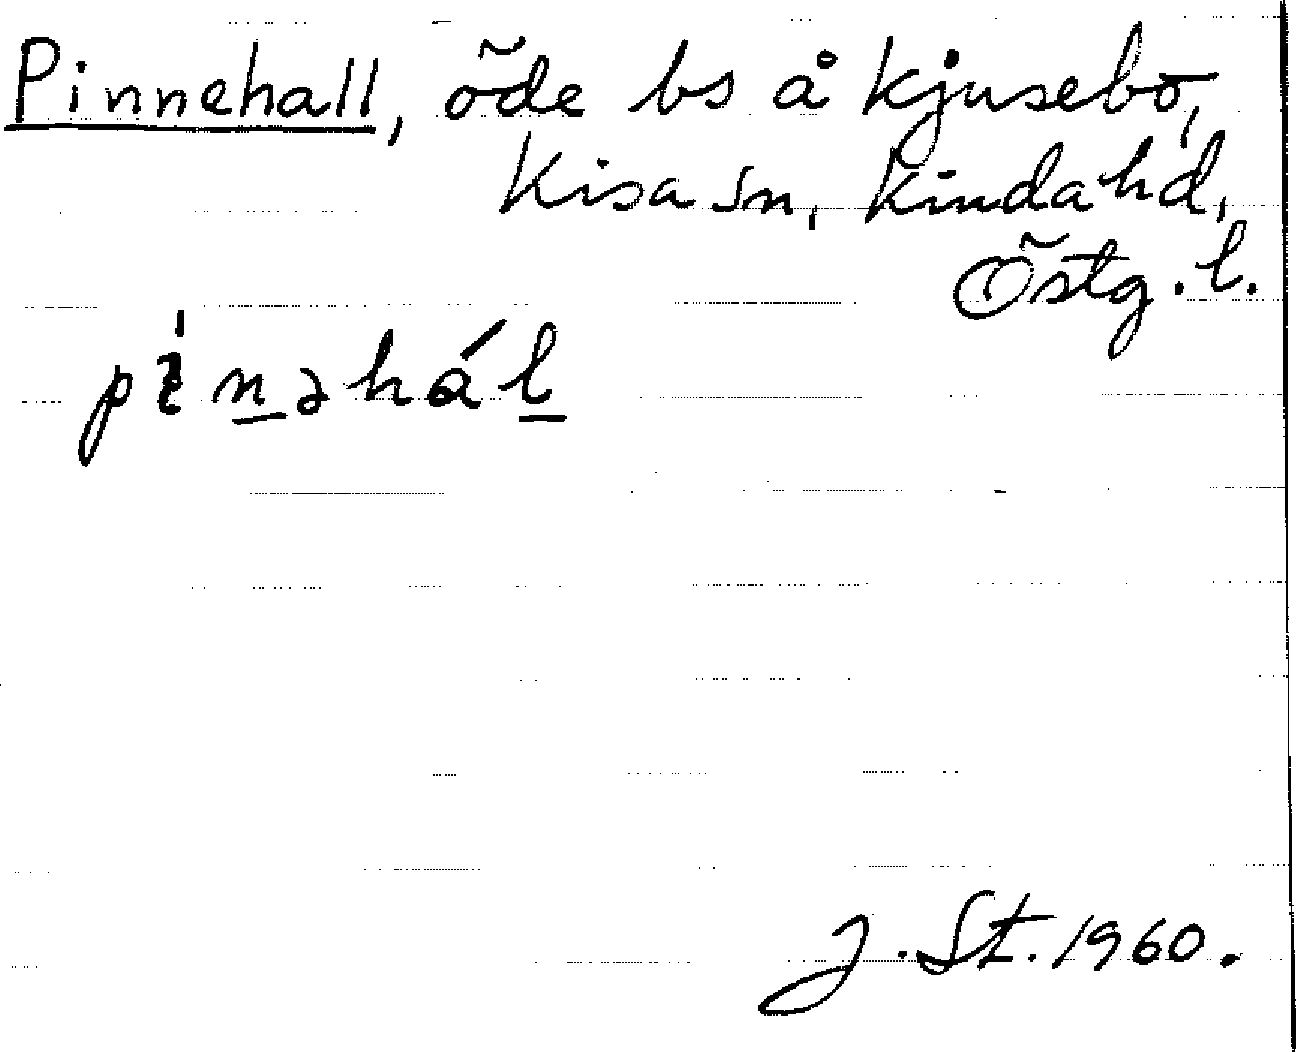 Pinnehall, öde bs å Kjusebo,
Kisa sn, Kinda hd,
Östg. l.
pìn̲əhál̲
J. St. 1960.